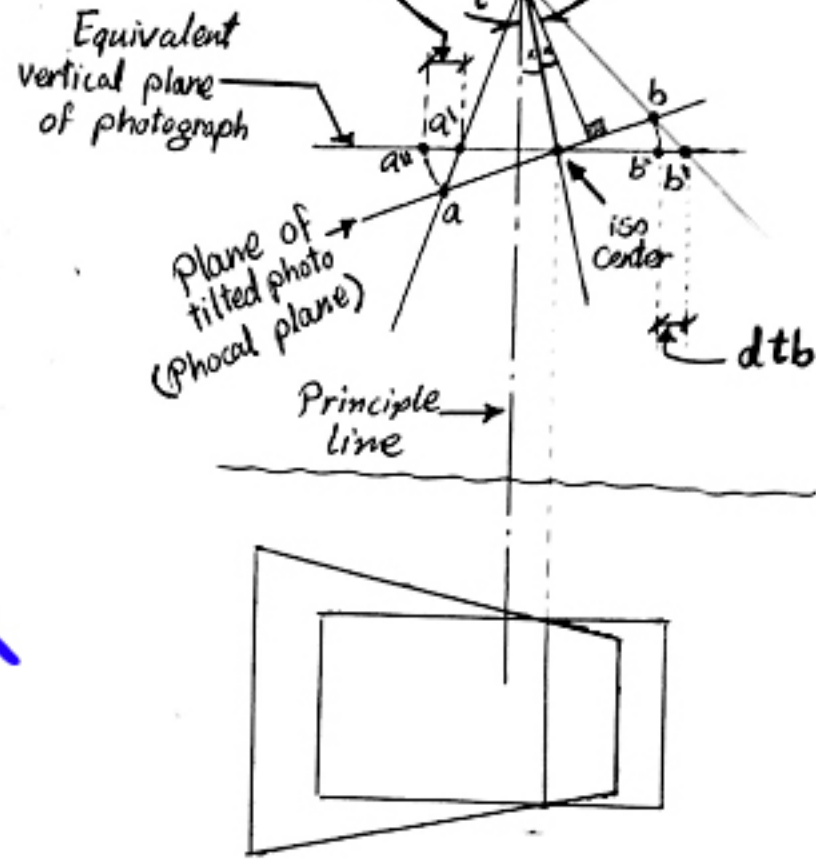 Equivalent
vertical plane
of photograph
t
a'
a"
a
b
b"
b'
iso
Center
Plane of
tilted photo
(Phocal plane)
dtb
Principle
line